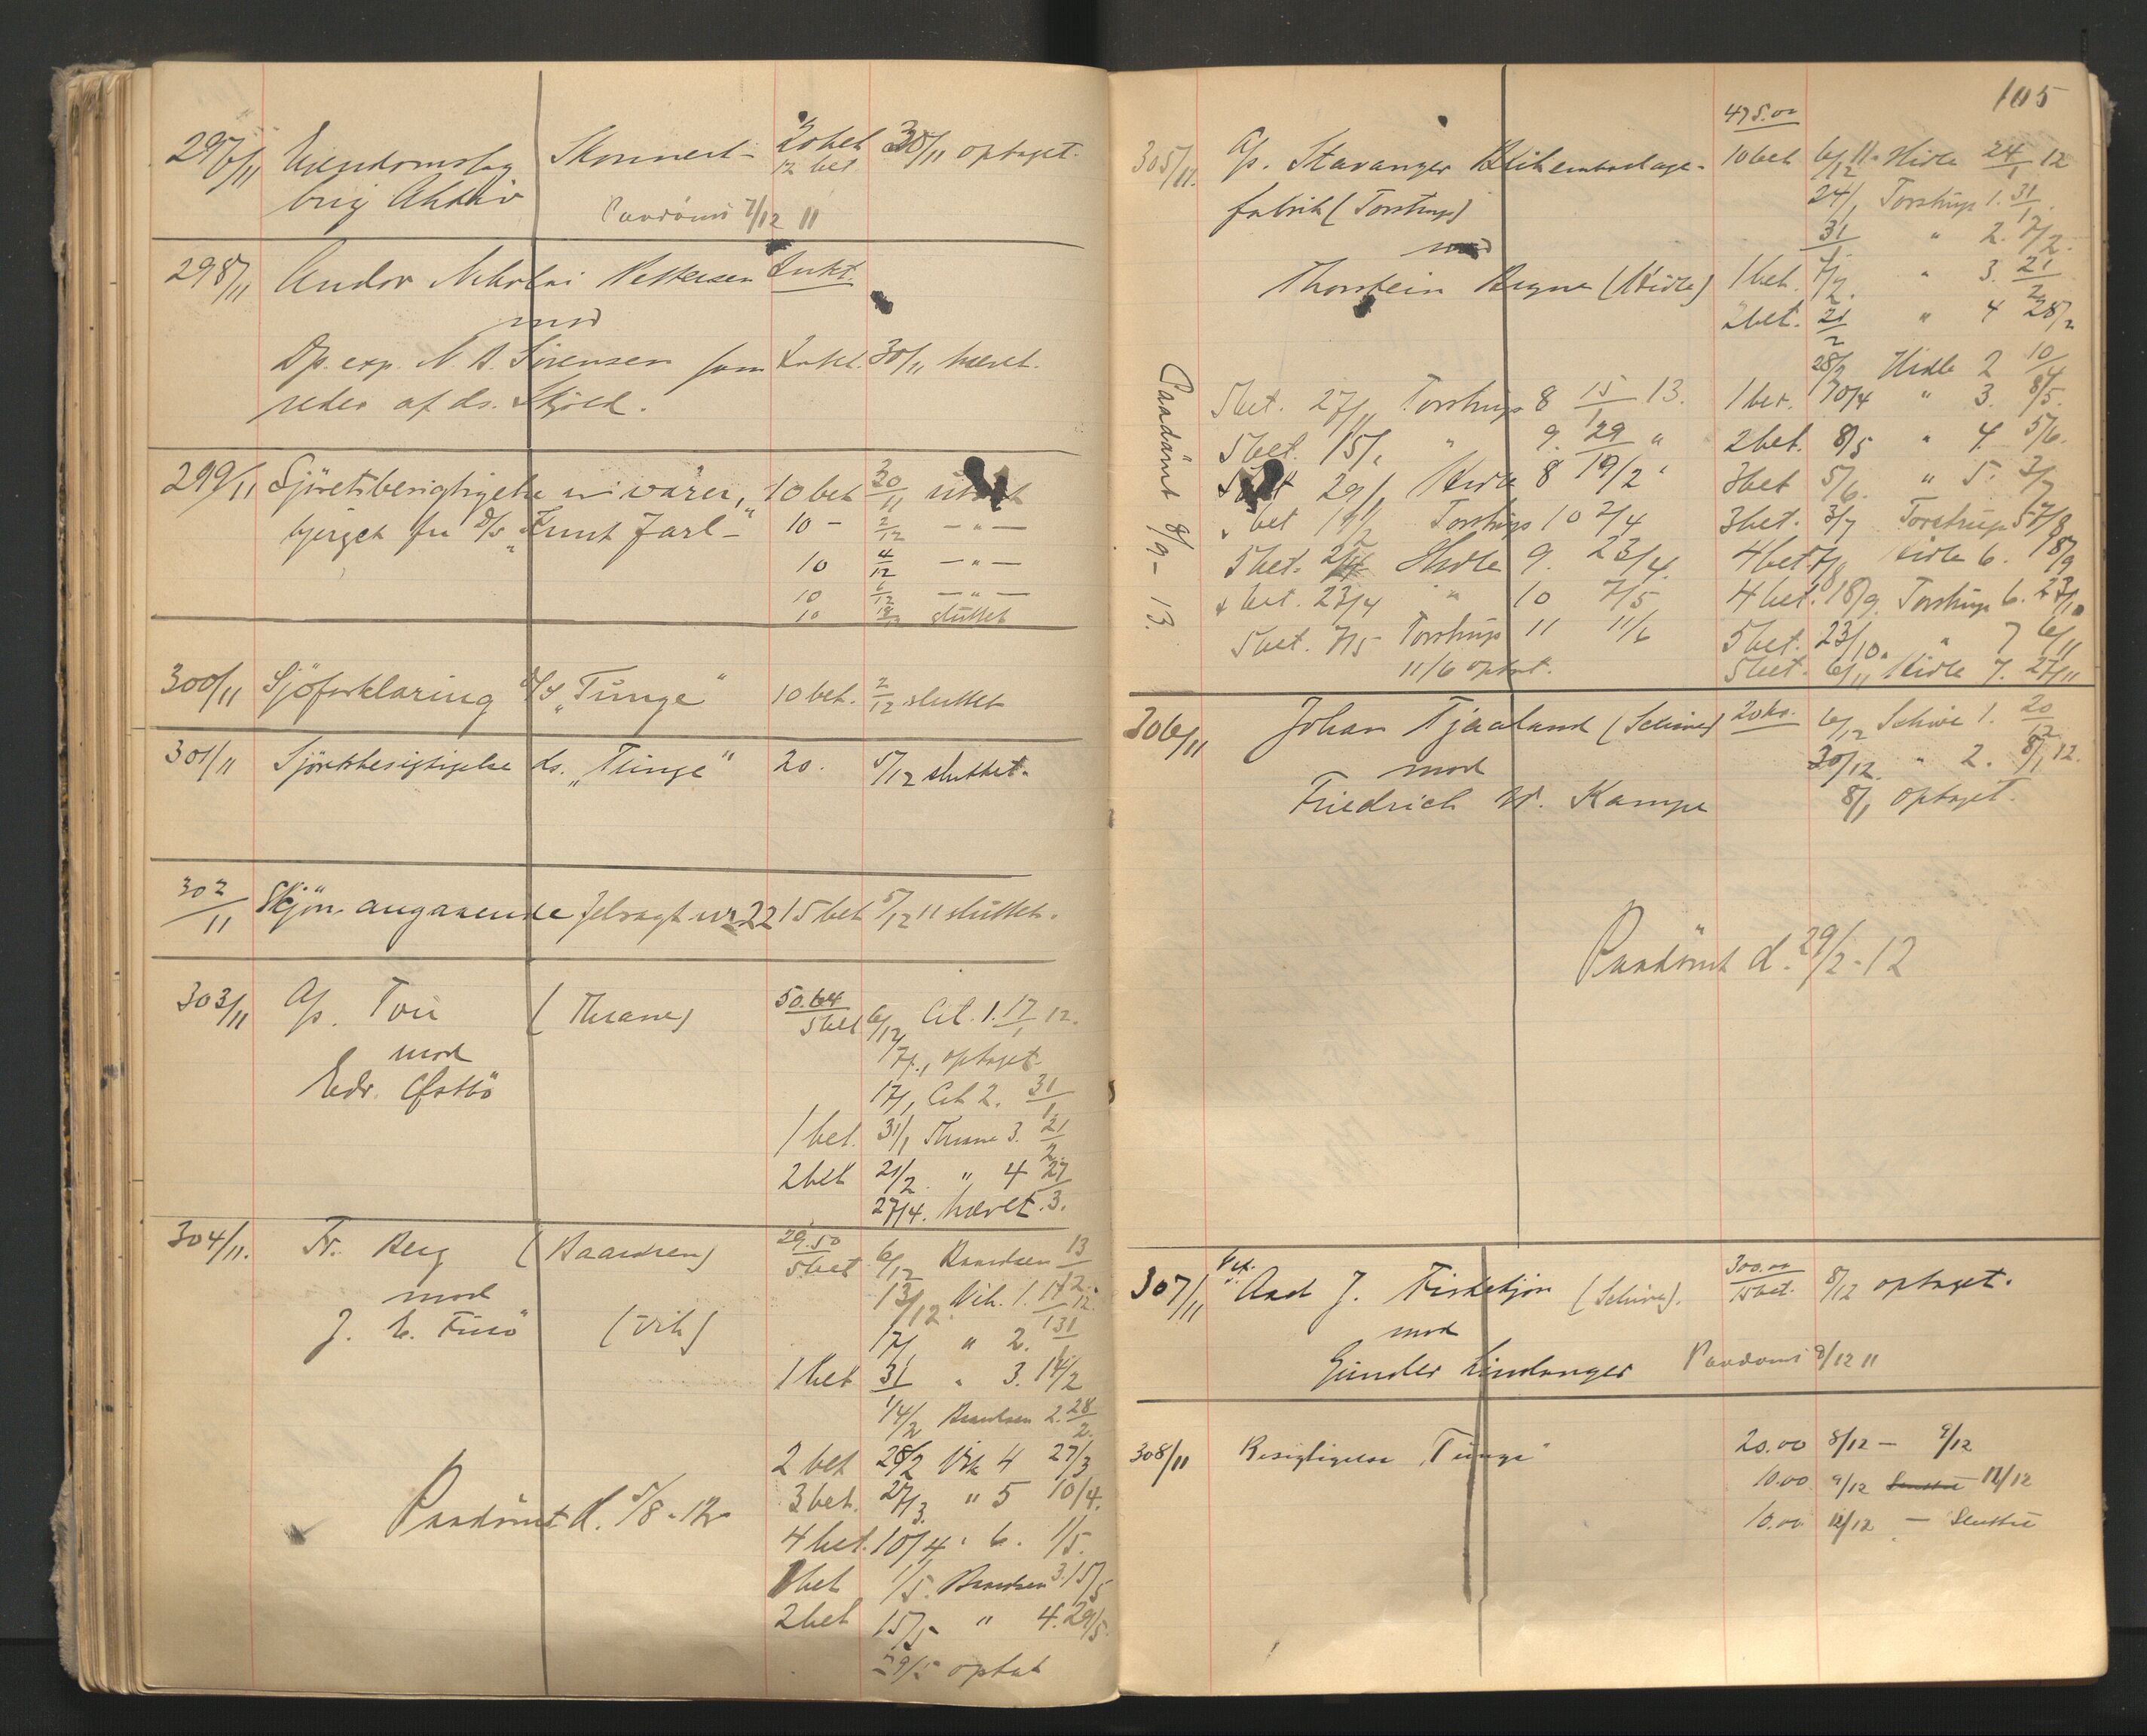 297/11 Eiendomsfog Skonnert- 20 bet 30/11 optaget.
12 bet
brig Paadömt 7/12 11
298/11 Andor Nikolai Pettersen Inkt.
mod
Dp. exp. N. A. Sörensen som Inkt. 30/11 hævet.
reder af ds. Skjold.
299/11 Sjöretsbesigtigelse varer, 10 bet 30/11
bjerget fra D/S „Kunt Jarl" 10 - 2/12 — " —
10 4/12 — " —
10 6/12 — " —
10 sluttet
300/11 Sjöforklaring D/S „Tunge" 10 bet. 2/12 sluttet
301/11 Sjöretsbesigtigelse ds. „Tunge" 20. 5/12 sluttet.
302/11 Skjön angaaende 22 15 bet 5/12 11 sluttet.
303/11 A/s. Tou (Thrane) 50.64
5 bet 6/12 Cit. 1. 17/1 12.
mod 17/1, optaget
Edv. Østbö 17/1 Cit 2. 31/1
1 bet. 31/1 Thrane 3. 21/2
2 bet 21/2 " 4 27/3.
27/4. hævet.
304/11. Fr. Berg (Baardsen) 29.50
5 bet 6/12 Baardsen 13/12
mod 13/12. Vik. 1. 17/1 12.
J. E. (Vik) 17/1 " 2. 31/1
1 bet 31/1 " 3. 14/2
14/2 Baardsen 2. 28/2
2 bet 28/2 Vik 4 27/3
3 bet. 27/3. " 5 10/4.
Paadömt d. 5/8 - 12
4 bet. 10/4 " 6. 1/5.
1 bet 1/5. Baardsen 3. 15/5
2 bet 15/5 " 4. 29/5
29/5 optat
105
475.00
305/11. A/s. Stavanger Blikemballage- 10 bet 6/12 11. Hidle 24/1 12
fabrik (Torstrup) 24/1 Torstrup 1. 31/1.
mod 31/1 " 2. 7/2.
Thorstein Bryne (Hidle) 1 bet. 7/2. " 3. 21/2
2 bet. 21/2 " 4 28/2
28/2 Hidle 2 10/4
Paadömt 8/9 - 13.
5 bet. 27/11 Torstrup 8 15/1 13. 1 bet. 10/4 " 3. 8/5.
5 bet. 15/1 " 9. 29/1 " 2 bet. 8/5 " 4. 5/6.
29/1 Hidle 8 19/2 " 3 bet 5/6. " 5. 3/7
bet 19/2 Torstrup 10 2/4 3 bet. 3/7 Torstrup 5 7/8
5 bet. 2/4 Hidle 9. 23/4. 4 bet 7/8 Hidle 6. 18/9
bet. 23/4 " 10 7/5 4 bet. 18/9. Torstrup 6. 23/10
5 bet. 7/5 Torstrup 11 11/6 5 bet. 23/10. " 7 6/11
11/6 optat. 5 bet. 6/11 Hidle 7. 27/11
306/11 Johan Tjaaland (Schive) 20 kr. 6/12 Schive 1. 20/12
mod 30/12. " 2. 8/1 12.
Friedrich W. Kampe 8/1 optaget.
Paadömt d. 29/2 - 12
307/11 Aad J. Fisketjön (Schive). 300.00
15 bet. 8/12 optaget.
mod
Gunder Lindanger Paadömt 9/12 11
308/11 Besigtigelse „Tunge" 20.00 8/12 — 9/12
10.00 9/12 Sluttet 12/12
10.00 12/12 — Sluttet